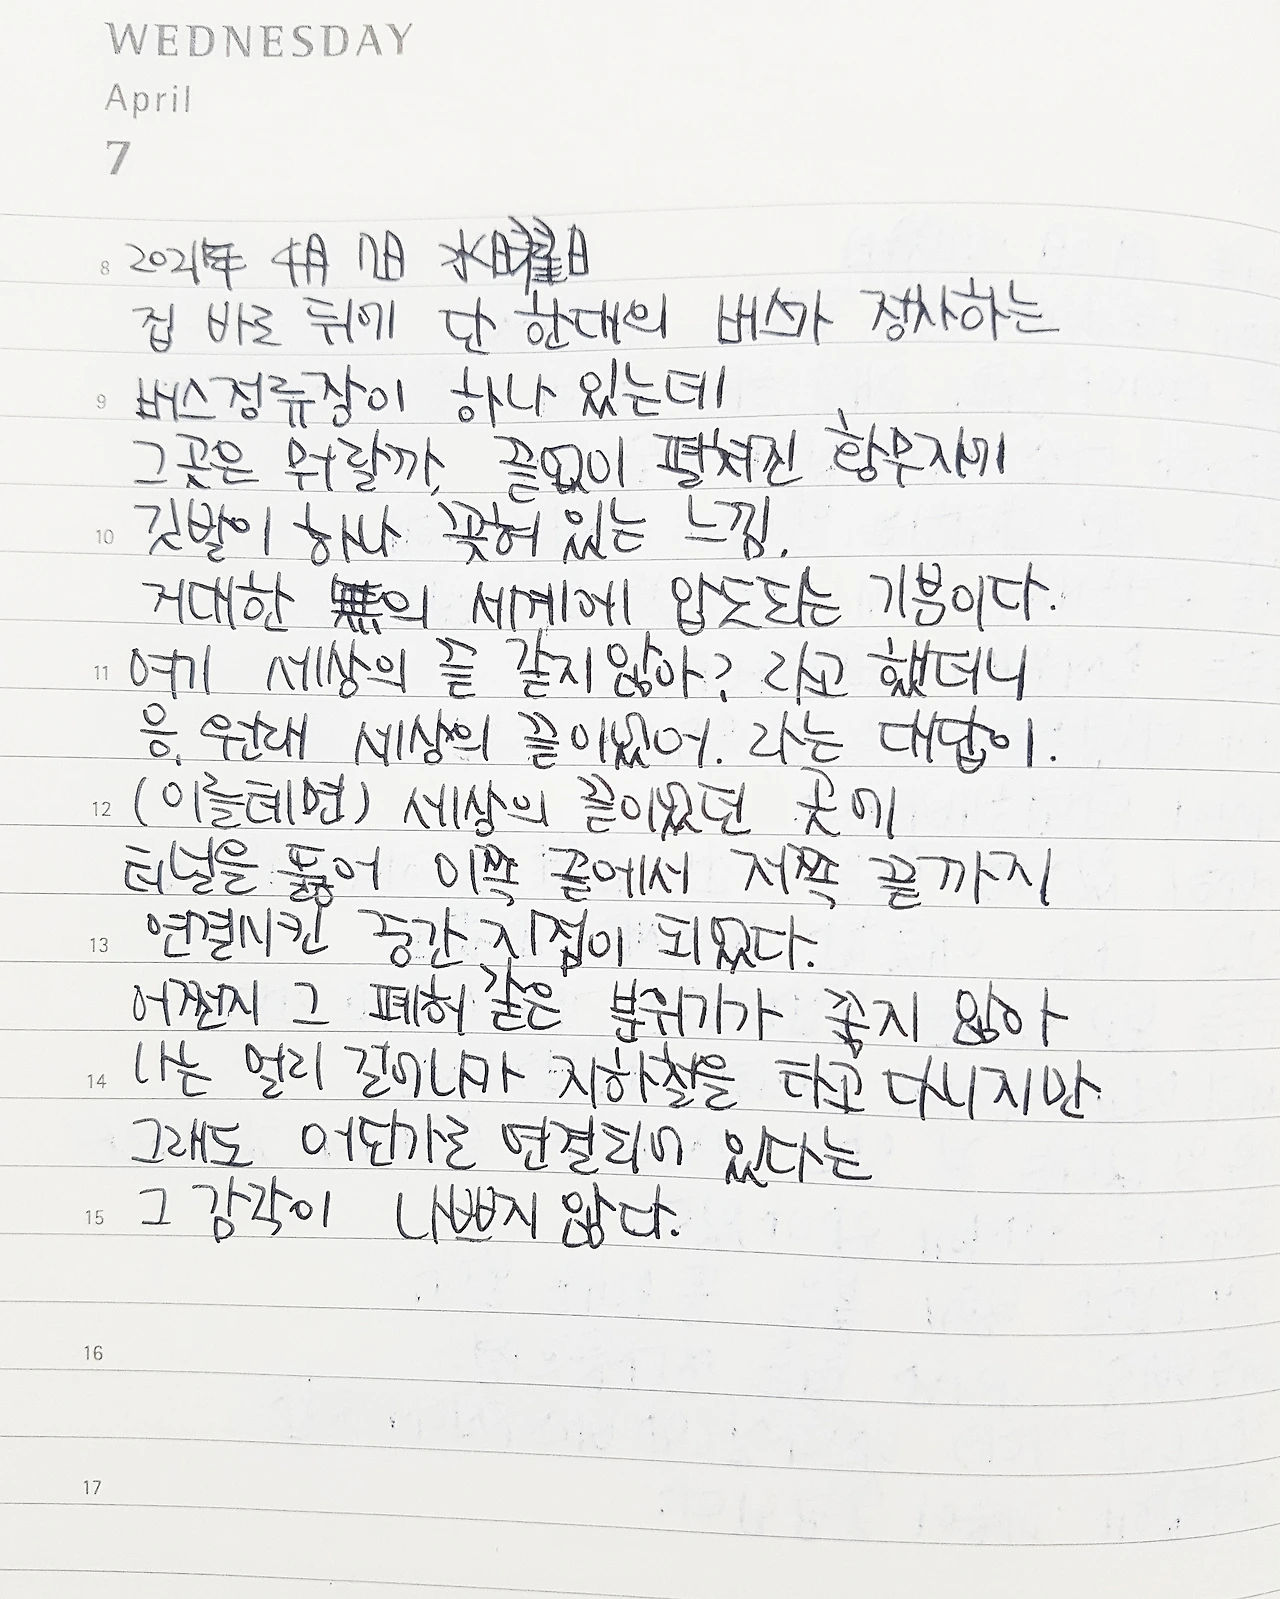 WEDNESDAY
April
7
8 2021年 4月 7日 水曜日
집 바로 뒤에 단 한대의 버스가 정차하는
9 버스정류장이 하나 있는데
그곳은 뭐랄까, 끝없이 펼쳐진 황무지에
10 깃발이 하나 꽂혀 있는 느낌.
거대한 無의 세계에 압도되는 기분이다.
11 여기 세상의 끝 같지 않아? 라고 했더니
응. 원래 세상의 끝이었어. 라는 대답이.
12 (이를테면) 세상의 끝이었던 곳에
터널을 뚫어 이쪽 끝에서 저쪽 끝까지
13 연결시킨 중간 지점이 되었다.
어쩐지 그 폐허 같은 분위기가 좋지 않아
14 나는 멀리 걸어나가 지하철을 타고 다니지만
그래도 어딘가로 연결되어 있다는
15 그 감각이 나쁘지 않다.
16
17